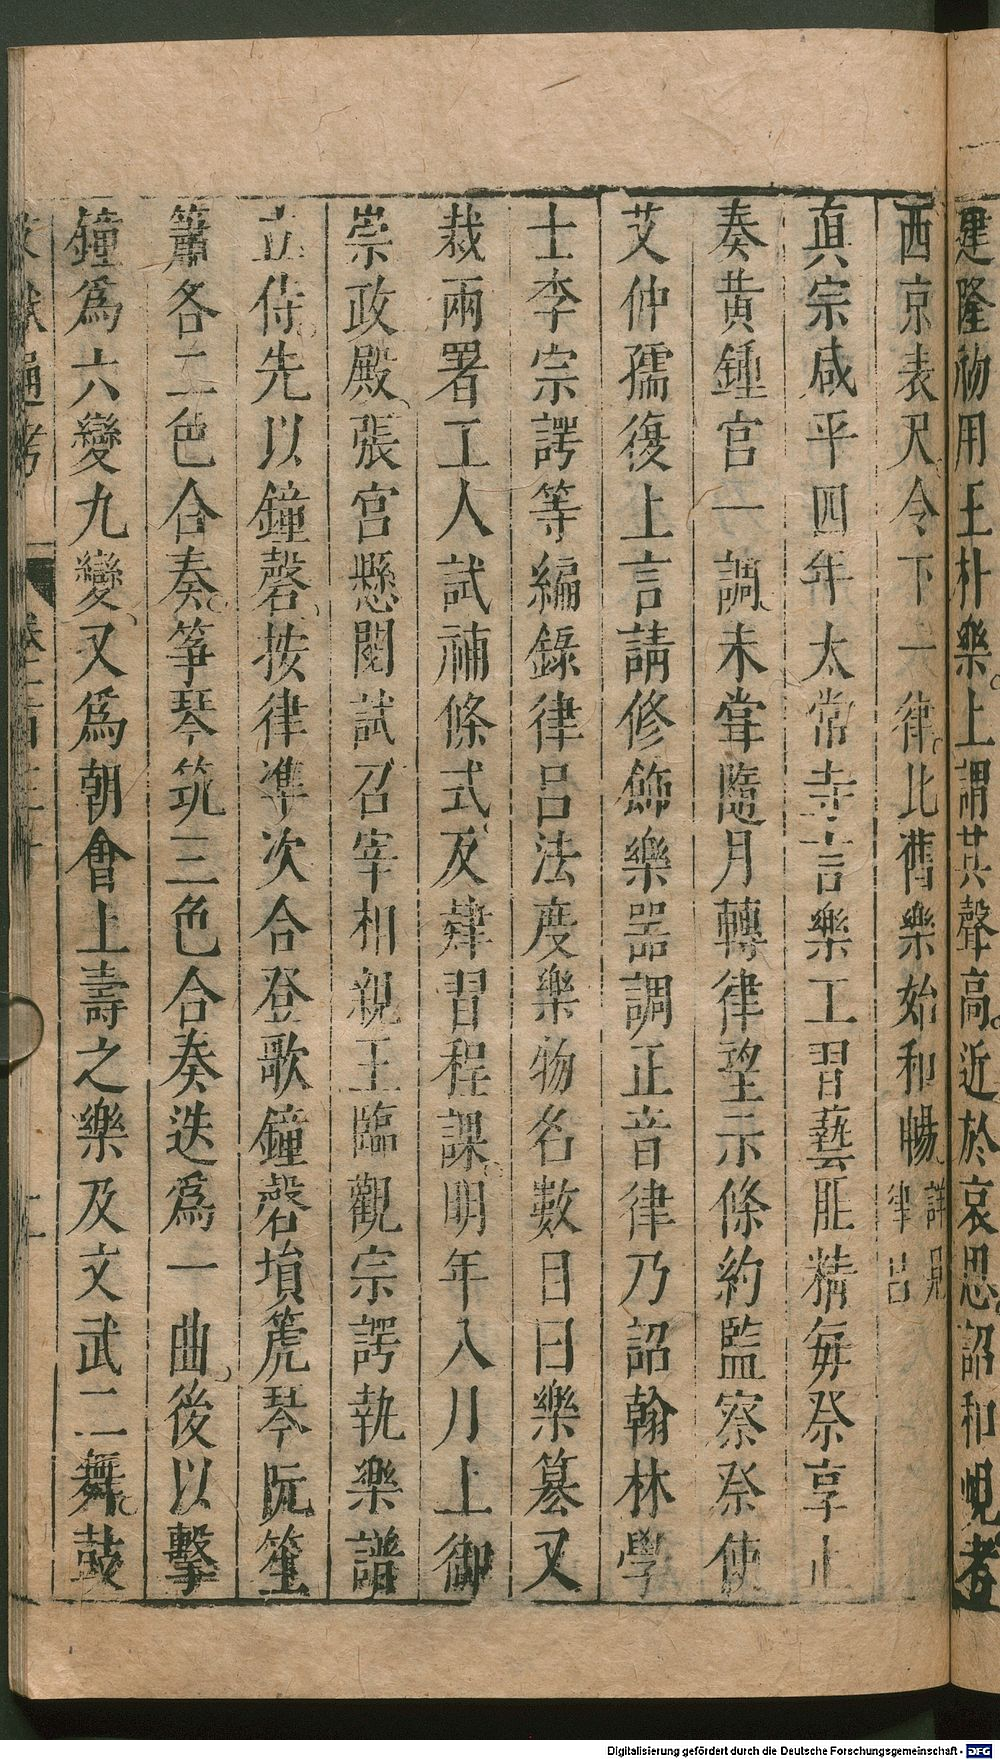 建隆初用王朴樂上謂其聲高近於哀思詔和峴考
西京表尺令下一律比舊樂始和暢詳見律呂
真宗咸平四年太常寺言樂工習藝匪精每祭享止
奏黃鍾宮一調未嘗隨月轉律望示條約監察祭使
艾仲孺復上言請修飾樂器調正音律乃詔翰林學
士李宗諤等編錄律呂法度樂物名數目曰樂纂又
裁兩署工人試補條式及肄習程課明年八月上御
崇政殿張宮懸閱試召宰相親王臨觀宗諤執樂譜
立侍先以鐘磬按律準次合登歌鐘磬塤篪琴阮笙
簫各二色合奏箏琴筑三色合奏迭為一曲後以擊
鐘為六變九變又為朝會上壽之樂及文武二舞鼓
文獻通考
卷一百三十
Digitalisierung gefördert durch die Deutsche Forschungsgemeinschaft - DFG